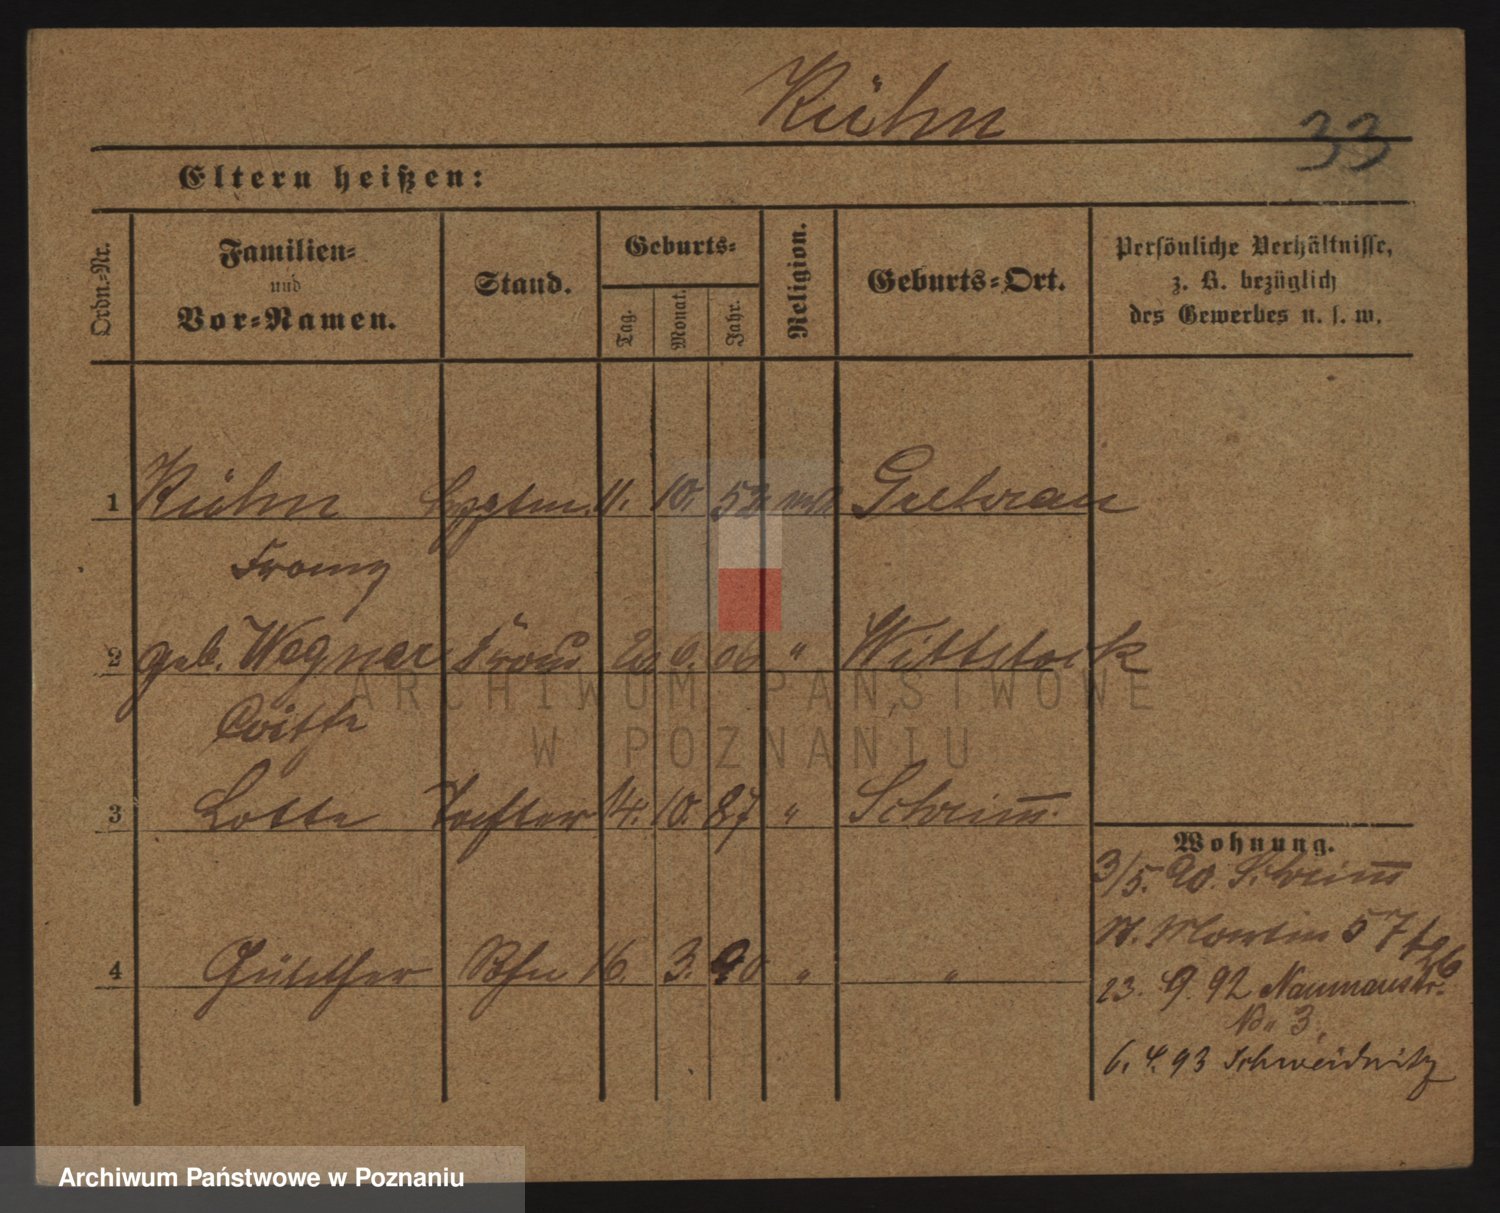 Kühn
33
Eltern heißen:
Ordn.-Nr.
Familien-
und
Vor-Namen.
Stand.
Geburts-
Tag.
Monat.
Jahr.
Religion.
Geburts-Ort.
Persönliche Verhältnisse,
z. B. bezüglich
des Gewerbes u. s. w.
1 Kühn Hptm. 11. 10. 52 Guhrau
Franz
2 geb. Wegner Frau 6. " Wittstock
3 Lotte Tochter 14. 10. 87 " Schrimm.
Wohnung.
3/5. 90. Schrimm
St. Martin 57
4 Günther Sohn 16. 3. 90 " "
23. 9. 92 Naumannstr.
No 3.
6. 4. 93 Schweidnitz
ARCHIWUM PAŃSTWOWE
W POZNANIU
Archiwum Państwowe w Poznaniu